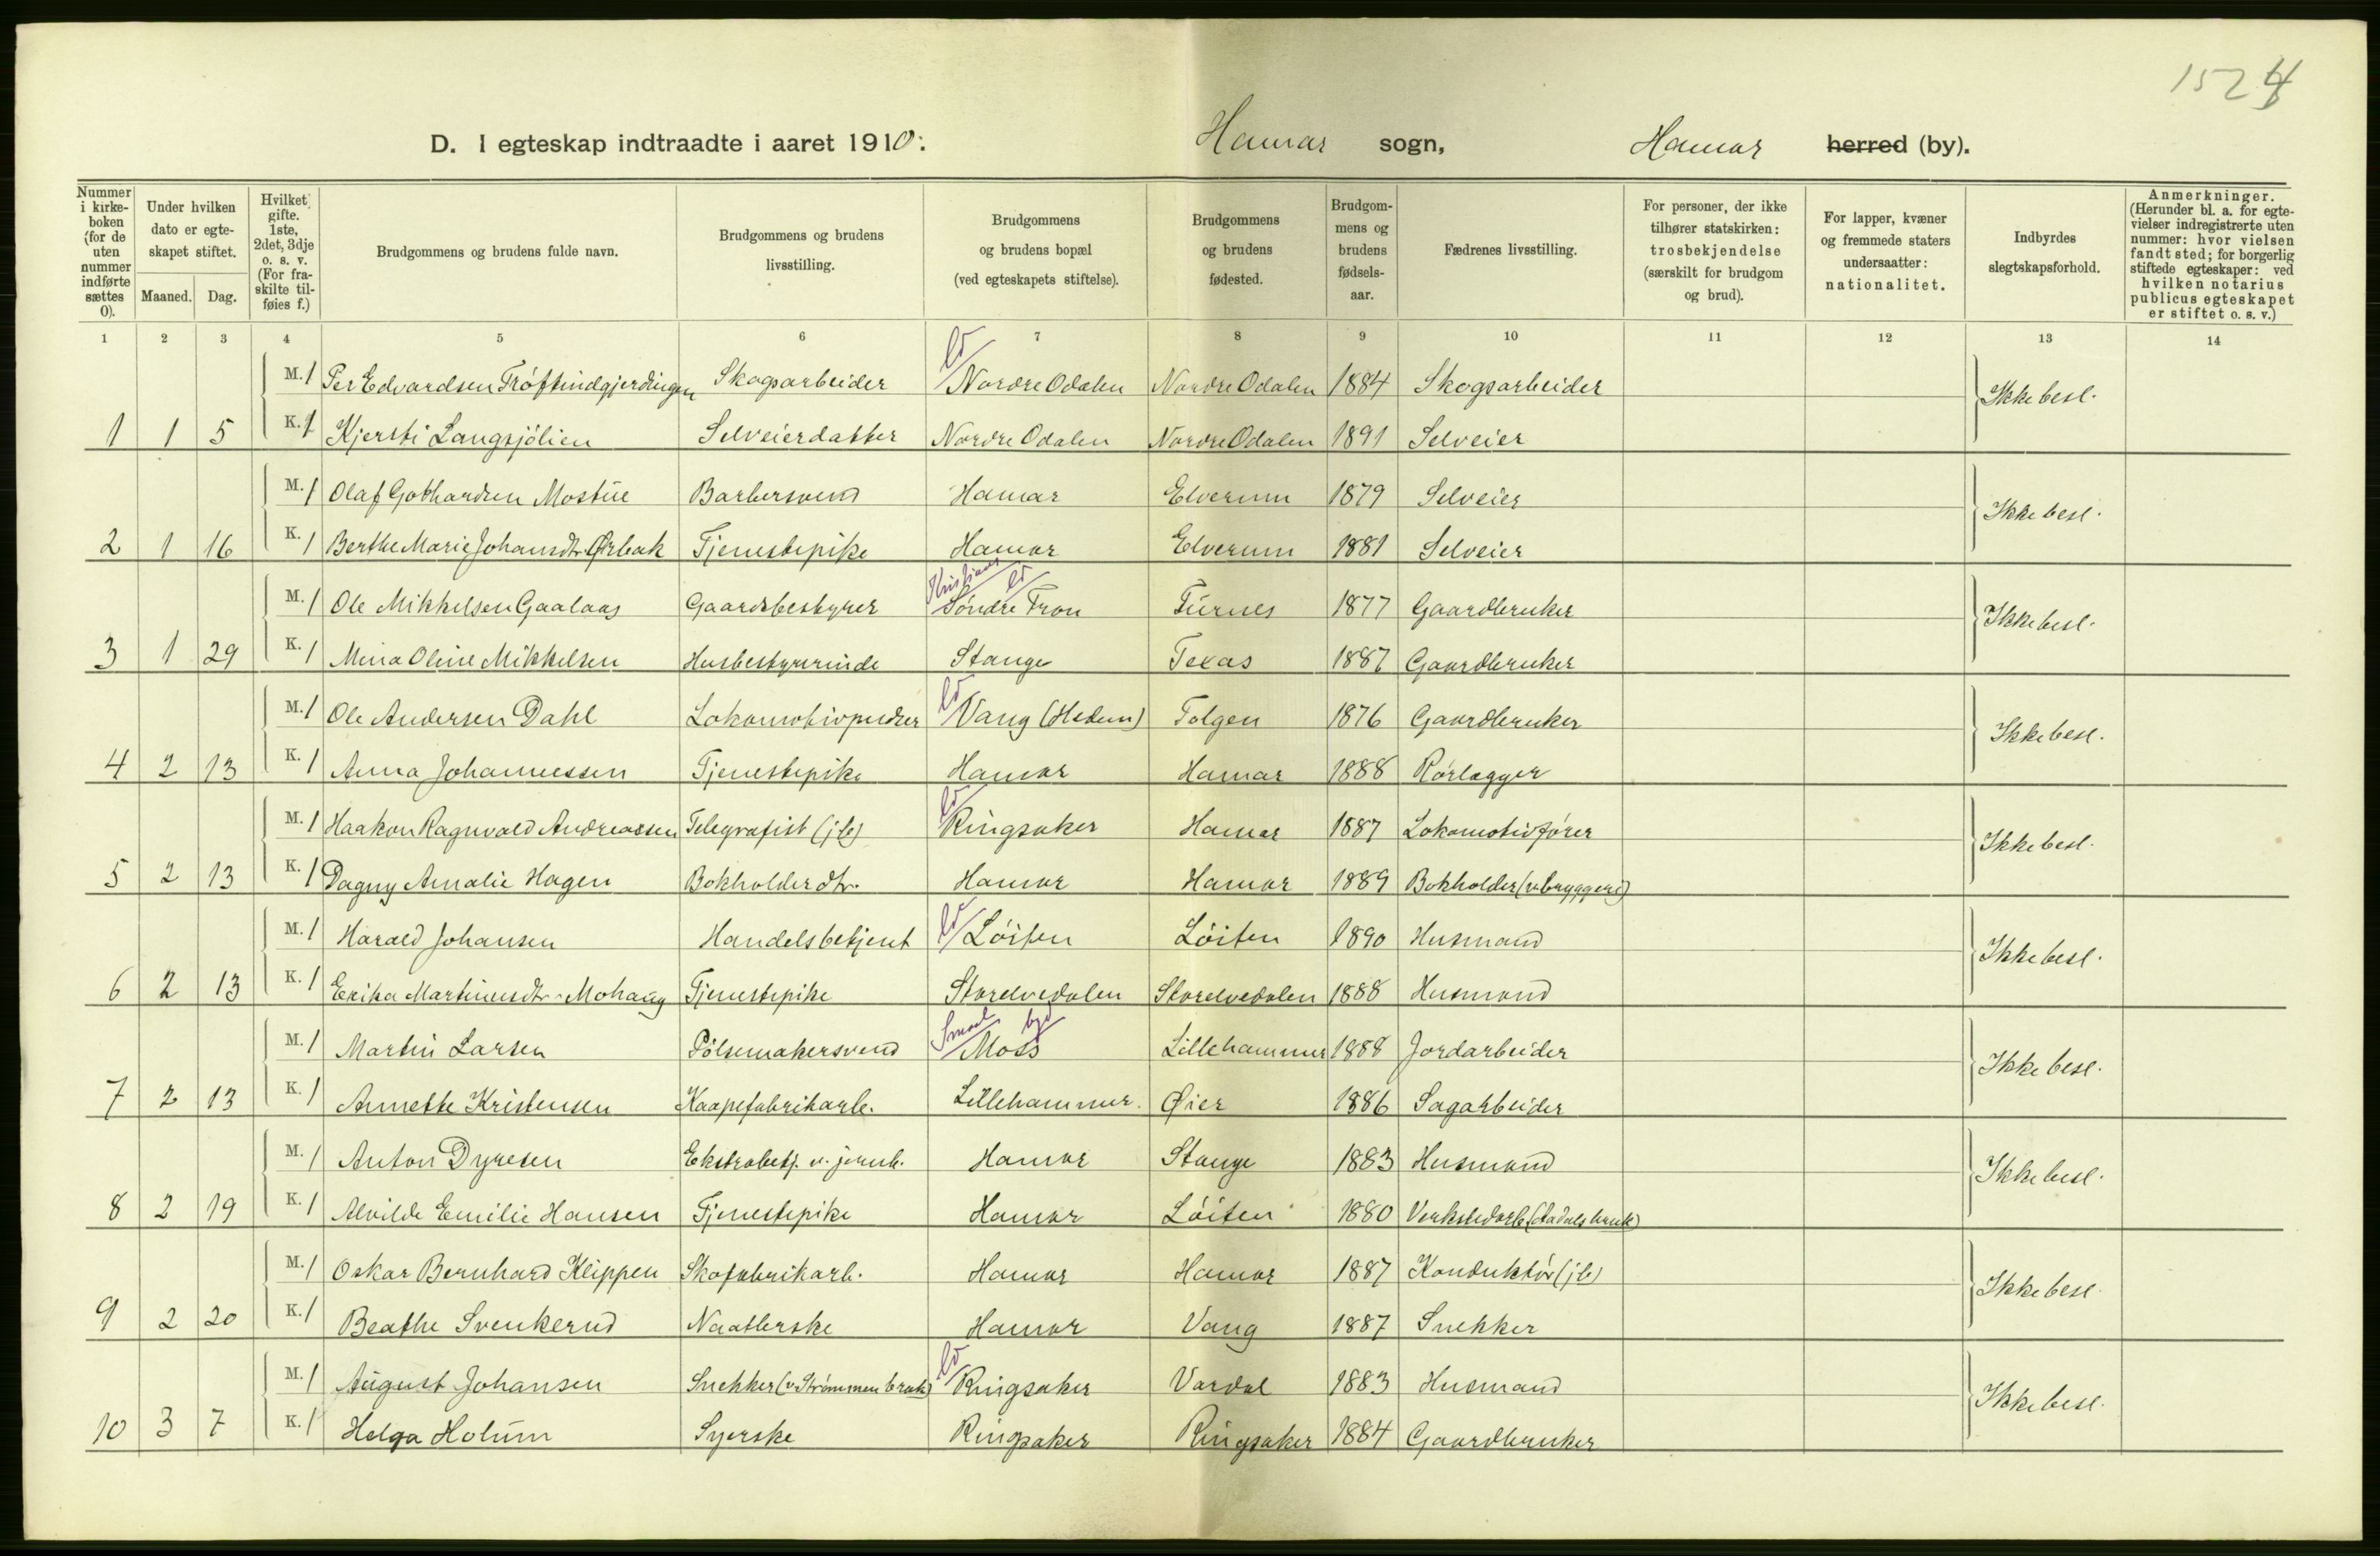 1524
D. I egteskap indtraadte i aaret 1910: Hamar sogn, Hamar herred (by).
Nummer i kirkeboken (for de uten nummer indførte sættes 0). Under hvilken dato er egteskapet stiftet. Maaned. Dag. Hvilket gifte. 1ste, 2det, 3dje o. s. v. (For fraskilte tilføies f.) Brudgommens og brudens fulde navn. Brudgommens og brudens livsstilling. Brudgommens og brudens bopæl (ved egteskapets stiftelse). Brudgommens og brudens fødested. Brudgommens og brudens fødselsaar. Fædrenes livsstilling. For personer, der ikke tilhører statskirken: trosbekjendelse (særskilt for brudgom og brud). For lapper, kvæner og fremmede staters undersaatter: nationalitet. Indbyrdes slegtskapsforhold. Anmerkninger. (Herunder bl. a. for egtevielser indregistrerte uten nummer: hvor vielsen fandt sted; for borgerlig stiftede egteskaper: ved hvilken notarius publicus egteskapet er stiftet o. s. v.)
1 2 3 4 5 6 7 8 9 10 11 12 13 14
M. 1 Per Edvardsen Tróftindgjerdingen Skogsarbeider ld Nordre Odalen Nordre Odalen 1884 Skogsarbeider Ikke besl.
1 1 5 K. 1 Kjersti Langsjölien Selveierdatter Nordre Odalen Nordre Odalen 1891 Selveier
M. 1 Olaf Gothardsen Mostue Barbersvend Hamar Elverum 1879 Selveier Ikke besl.
2 1 16 K. 1 Berthe Marie Johansdtr. Ørbak Tjenestepike Hamar Elverum 1881 Selveier
Kristians ld
M. 1 Ole Mikkelsen Gaalaas Gaardsbestyrer Söndre Fron Furnes 1877 Gaardbruker Ikke besl.
3 1 29 K. 1 Mina Oline Mikkelsen Husbestyrerinde Stange Texas 1887 Gaardbruker
M. 1 Ole Andersen Dahl Lokomotivpudser ld Vang (Hedem) Tolgen 1876 Gaardbruker Ikke besl.
4 2 13 K. 1 Anna Johannessen Tjenestepike Hamar Hamar 1888 Rörlægger
M. 1 Haakon Ragnvald Andreassen Telegrafist (jb) ld Ringsaker Hamar 1887 Lokomotivförer Ikke besl.
5 2 13 K. 1 Dagny Amalie Hagen Bokholderdtr. Hamar Hamar 1889 Bokholder (v. bryggeri)
M. 1 Harald Johansen Handelsbetjent ld Löiten Löiten 1890 Husmand Ikke besl.
6 2 13 K. 1 Erika Martinusdtr. Mohaug Tjenestepike Storelvedalen Storelvedalen 1888 Husmand
Smaal. by
M. 1 Martin Larsen Pölsemakersvend Moss Lillehammer 1888 Jordarbeider Ikke besl.
7 2 13 K. 1 Annette Kristensen Kaapefabrikarb. Lillehammer. Øier 1886 Sagarbeider
M. 1 Anton Dyresen Ekstrabetj. v. jernb. Hamar Stange 1883 Husmand Ikke besl.
8 2 19 K. 1 Alvilde Emilie Hansen Tjenestepike Hamar Löiten 1880 Verkstedarb (Aadals bruk)
M. 1 Oskar Bernhard Klippen Skofabrikarb. Hamar Hamar 1887 Konduktör (jb) Ikke besl.
9 2 20 K. 1 Beathe Svenkerud Naatlerske Hamar Vang 1887 Snekker
M. 1 August Johansen Snekker (v. Strömmen bruk) ld Ringsaker Vardal 1883 Husmand Ikke besl.
10 3 7 K. 1 Helga Holum Syerske Ringsaker Ringsaker 1884 Gaardbruker